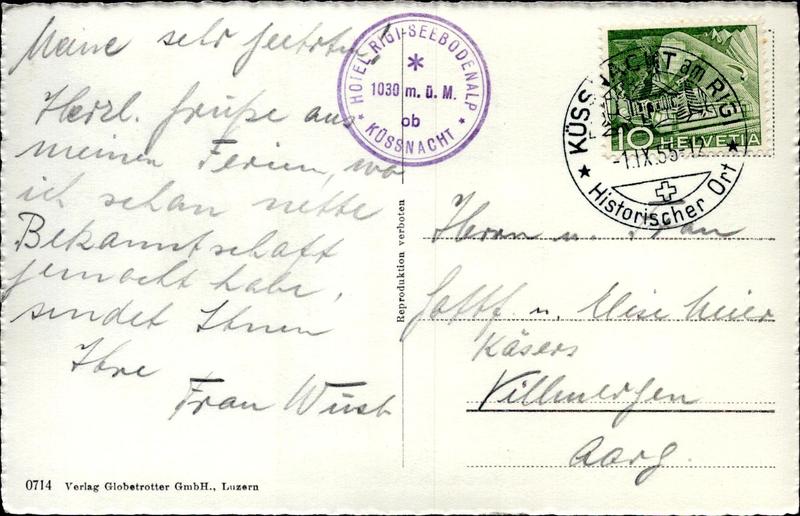 Meine sehr geehrten!
Herzl. Grüße aus
meinen Ferien, wo
ich schon nette
Bekanntschaft
gemacht habe,
sendet Ihnen
Ihre
Frau Wüst
HOTEL RIGI-SEEBODENALP
1030 m. ü. M.
ob
KÜSSNACHT
KÜSSNACHT am RIGI
-1.IX.55-12
Historischer Ort
10 HELVETIA
Reproduktion verboten
Herrn u. Frau
Gottf. u. Mier
Käsers
Villmergen
Aarg.
0714 Verlag Globetrotter GmbH., Luzern